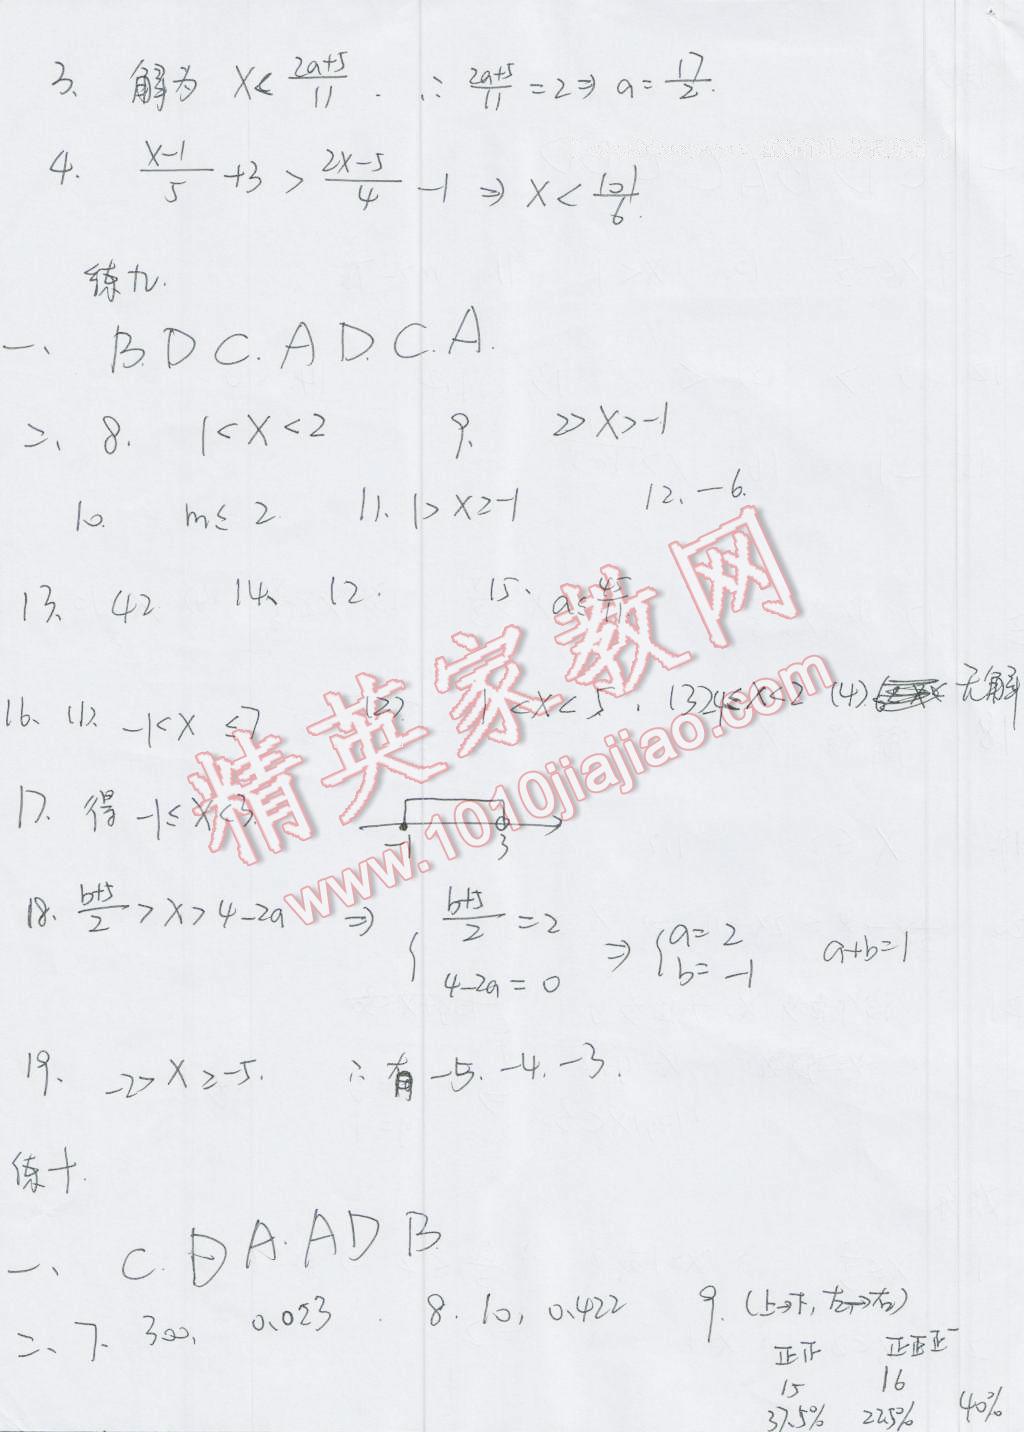 3、 解为 X< (2a+5)/11 . ∴ (2a+5)/11 =2 ⇒ a= 17/2.
4. (X-1)/5 +3 > (2X-5)/4 -1 ⇒ X< 101/6.
练九.
一、 B. D C. A D. C. A.
二、 8. 1<X<2 9、 2>X>-1
10. m≤2 11. 1>X≥-1 12、-6.
13、 42 14、 12. 15、 a≤ 45/11.
16、(1). -1<X≤7 (2). 1<X<5. (3) 4≤X<2 (4) 无解
17. 得 -1≤X<3.
-1 3
18、 (b+5)/2 >X>4-2a ⇒ { (b+5)/2 =2 4-2a=0 ⇒ { a=2 b=-1 a+b=1
19、 -2>X≥-5. ∴有 -5. -4. -3.
练十.
一、 C. D A. A D B.
二、7. 300, 0.053 . 8. 10, 0.422 9. (上→下, 左→右)
正正 正正正一
15 16
37.5% 22.5% 40%
精英家教网
www.1010jiajiao.com